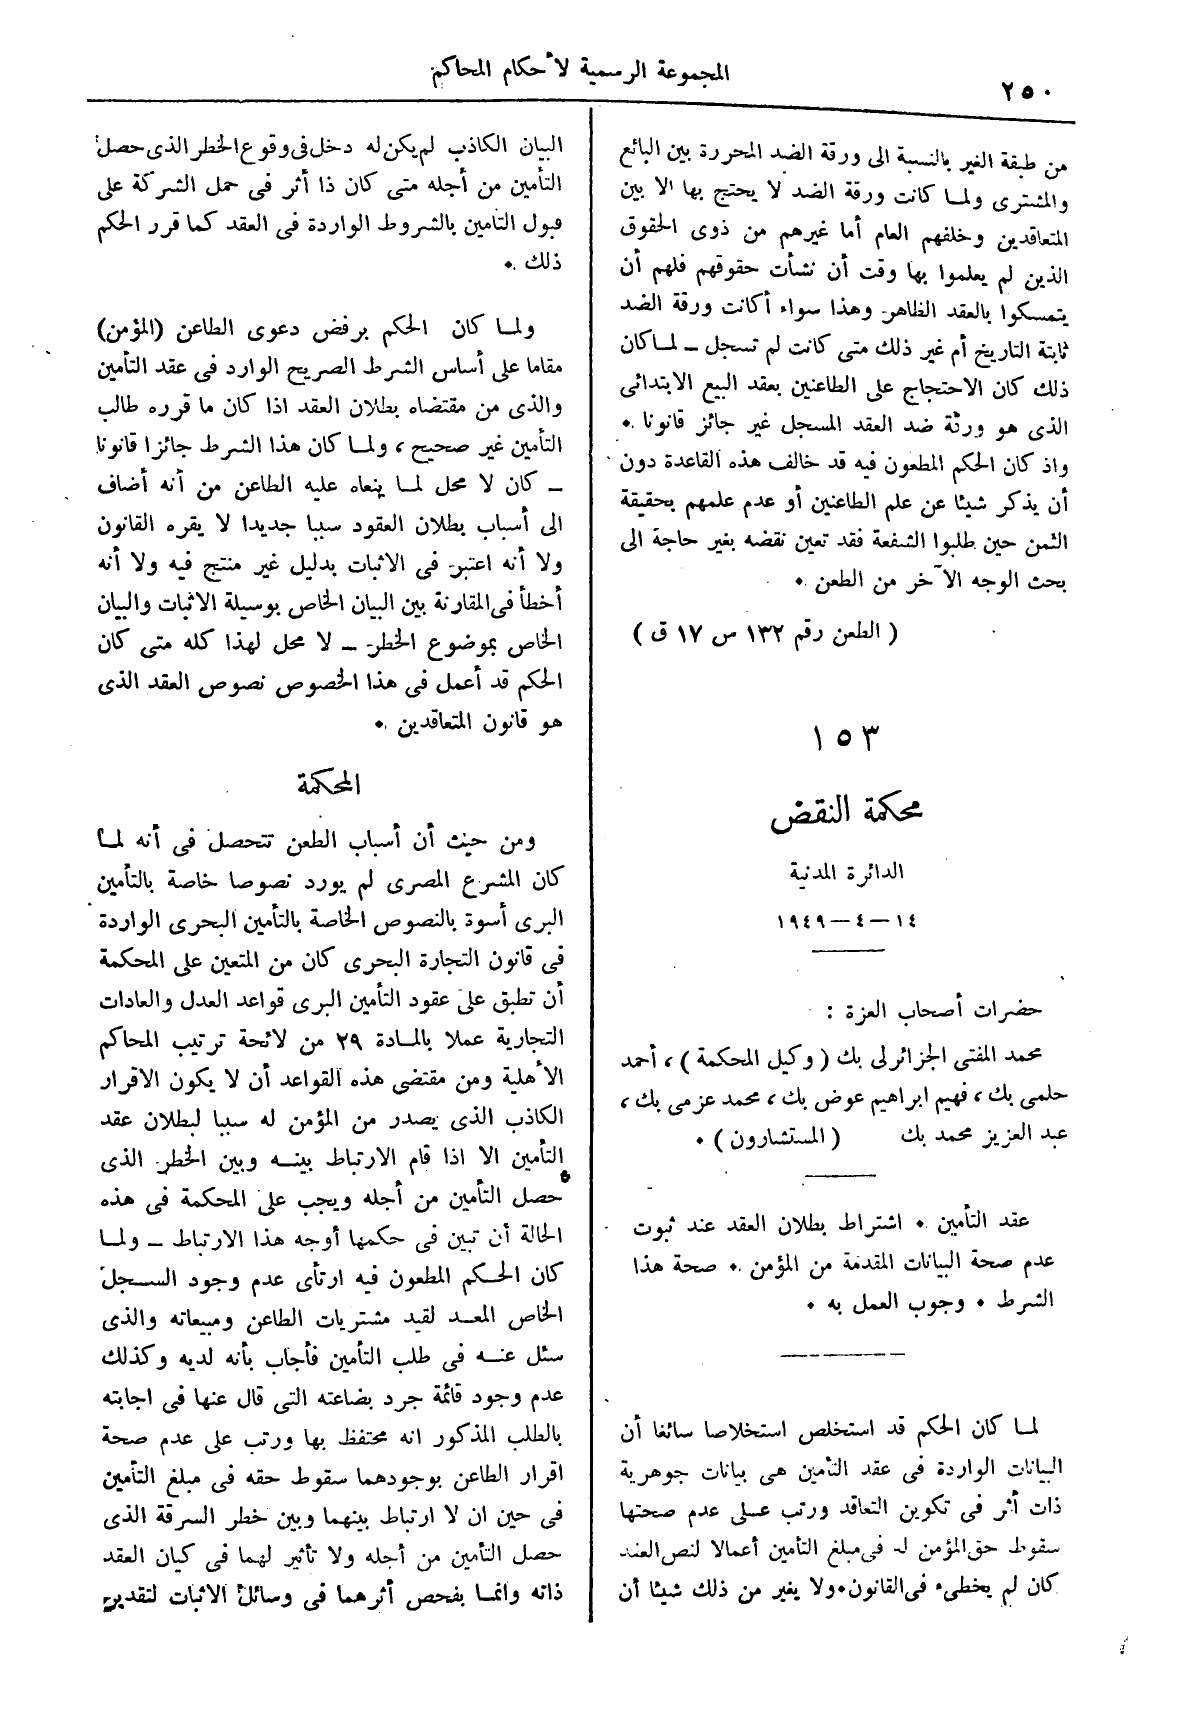 ٢٥٠
المجموعة الرسمية لأحكام المحاكم
من طبقة الغير بالنسبة الى ورقة الضد المحررة بين البائع
والمشترى ولما كانت ورقة الضد لا يحتج بها الا بين
المتعاقدين وخلفهم العام أما غيرهم من ذوى الحقوق
الذين لم يعلموا بها وقت أن نشأت حقوقهم فلهم أن
يتمسكوا بالعقد الظاهر وهذا سواء أكانت ورقة الضد
ثابتة التاريخ أم غير ذلك متى كانت لم تسجل ـ لما كان
ذلك كان الاحتجاج على الطاعنين بعقد البيع الابتدائى
الذى هو ورثة ضد العقد المسجل غير جائز قانونا .
واذ كان الحكم المطعون فيه قد خالف هذه القاعدة دون
أن يذكر شيئا عن علم الطاعنين أو عدم علمهم بحقيقة
الثمن حين طلبوا الشفعة فقد تعين نقضه بغير حاجة الى
بحث الوجه الآخر من الطعن .
( الطعن رقم ١٣٢ س ١٧ ق )
١٥٣
محكمة النقض
الدائرة المدنية
١٤ – ٤ – ١٩٤٩
حضرات أصحاب العزة :
محمد المفتى الجزائرلى بك ( وكيل المحكمة ) ، أحمد
حلمى بك ، فهيم ابراهيم عوض بك ، محمد عزمى بك ،
عبد العزيز محمد بك ( المستشارون ) .
عقد التأمين . اشتراط بطلان العقد عند ثبوت
عدم صحة البيانات المقدمة من المؤمن . صحة هذا
الشرط . وجوب العمل به .
لما كان الحكم قد استخلص استخلاصا سائغا أن
البيانات الواردة فى عقد التأمين هى بيانات جوهرية
ذات أثر فى تكوين التعاقد ورتب على عدم صحتها
سقوط حق المؤمن له فى مبلغ التأمين أعمالا لنص العقد
كان لم يخطىء فى القانون . ولا يغير من ذلك شيئا أن
البيان الكاذب لم يكن له دخل فى وقوع الخطر الذى حصل
التأمين من أجله متى كان ذا أثر فى حمل الشركة على
قبول التأمين بالشروط الواردة فى العقد كما قرر الحكم
ذلك .
ولما كان الحكم برفض دعوى الطاعن (المؤمن)
مقاما على أساس الشرط الصريح الوارد فى عقد التأمين
والذى من مقتضاه بطلان العقد اذا كان ما قرره طالب
التأمين غير صحيح ، ولما كان هذا الشرط جائزا قانونا
ـ كان لا محل لما ينعاه عليه الطاعن من أنه أضاف
الى أسباب بطلان العقود سببا جديدا لا يقره القانون
ولا أنه اعتبر فى الاثبات بدليل غير منتج فيه ولا أنه
أخطأ فى المقارنة بين البيان الخاص بوسيلة الاثبات والبيان
الخاص بموضوع الخطر ـ لا محل لهذا كله متى كان
الحكم قد أعمل فى هذا الخصوص نصوص العقد الذى
هو قانون المتعاقدين .
المحكمة
ومن حيث أن أسباب الطعن تتحصل فى أنه لما
كان المشرع المصرى لم يورد نصوصا خاصة بالتأمين
البرى أسوة بالنصوص الخاصة بالتأمين البحرى الواردة
فى قانون التجارة البحرى كان من المتعين على المحكمة
أن تطبق على عقود التأمين البرى قواعد العدل والعادات
التجارية عملا بالمادة ٢٩ من لائحة ترتيب المحاكم
الأهلية ومن مقتضى هذه القواعد أن لا يكون الاقرار
الكاذب الذى يصدر من المؤمن له سببا لبطلان عقد
التأمين الا اذا قام الارتباط بينه وبين الخطر الذى
حصل التأمين من أجله ويجب على المحكمة فى هذه
الحالة أن تبين فى حكمها أوجه هذا الارتباط ـ ولما
كان الحكم المطعون فيه ارتأى عدم وجود السجل
الخاص المعد لقيد مشتريات الطاعن ومبيعاته والذى
سئل عنه فى طلب التأمين فأجاب بأنه لديه وكذلك
عدم وجود قائمة جرد بضاعته التى قال عنها فى اجابته
بالطلب المذكور انه محتفظ بها ورتب على عدم صحة
اقرار الطاعن بوجودهما سقوط حقه فى مبلغ التأمين
فى حين ان لا ارتباط بينهما وبين خطر السرقة الذى
حصل التأمين من أجله ولا تأثير لهما فى كيان العقد
ذاته وانما يفحص أثرهما فى وسائل الاثبات لتقدير